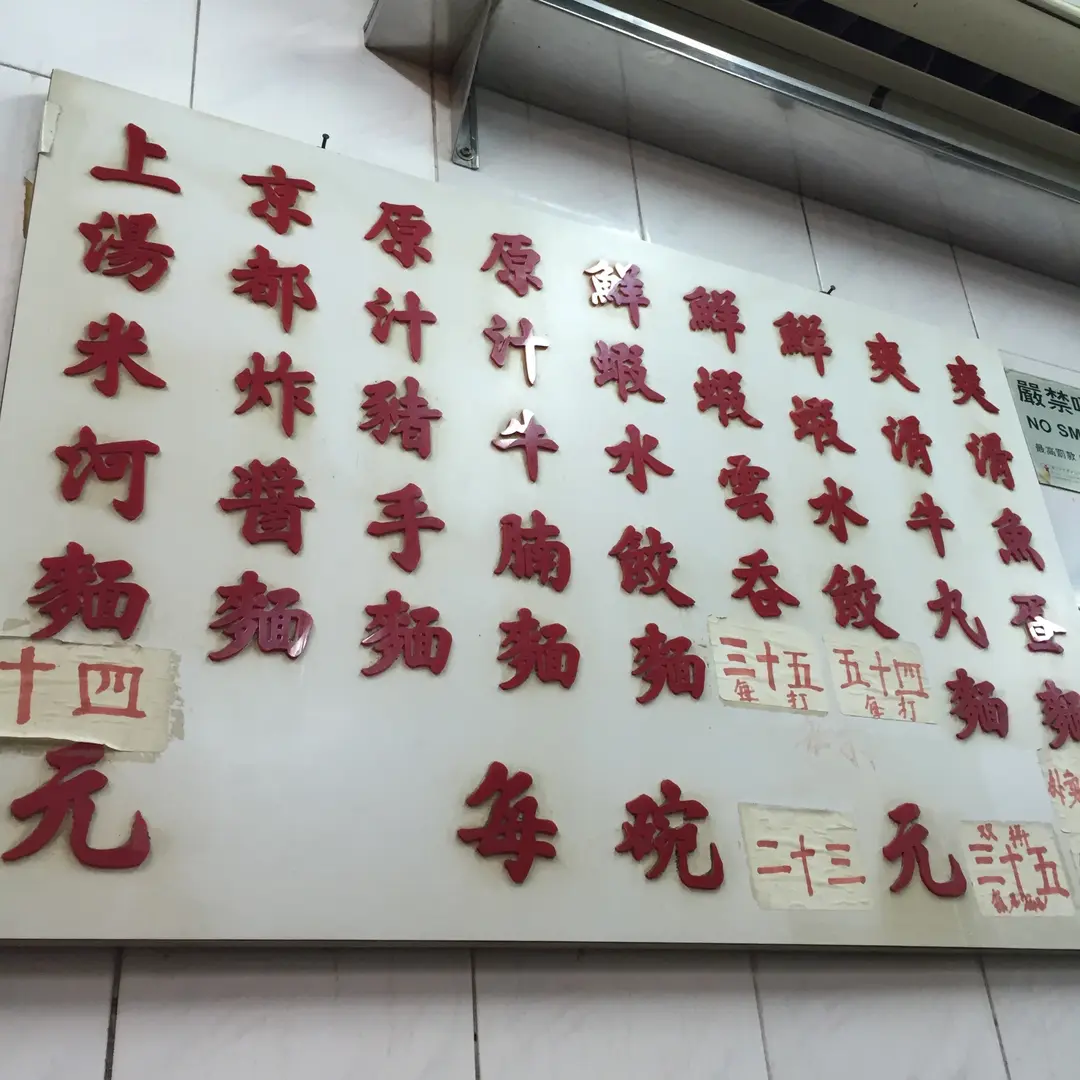 爽滑魚蛋麵
爽滑牛丸麵
鮮蝦水餃
五十四
每打
鮮蝦雲吞
三十五
每打
鮮蝦水餃麵
原汁牛腩麵
原汁豬手麵
京都炸醬麵
上湯米河麵
十四
元
每碗二十三元
双拼
三十五
嚴禁
NO SM
最高罰款